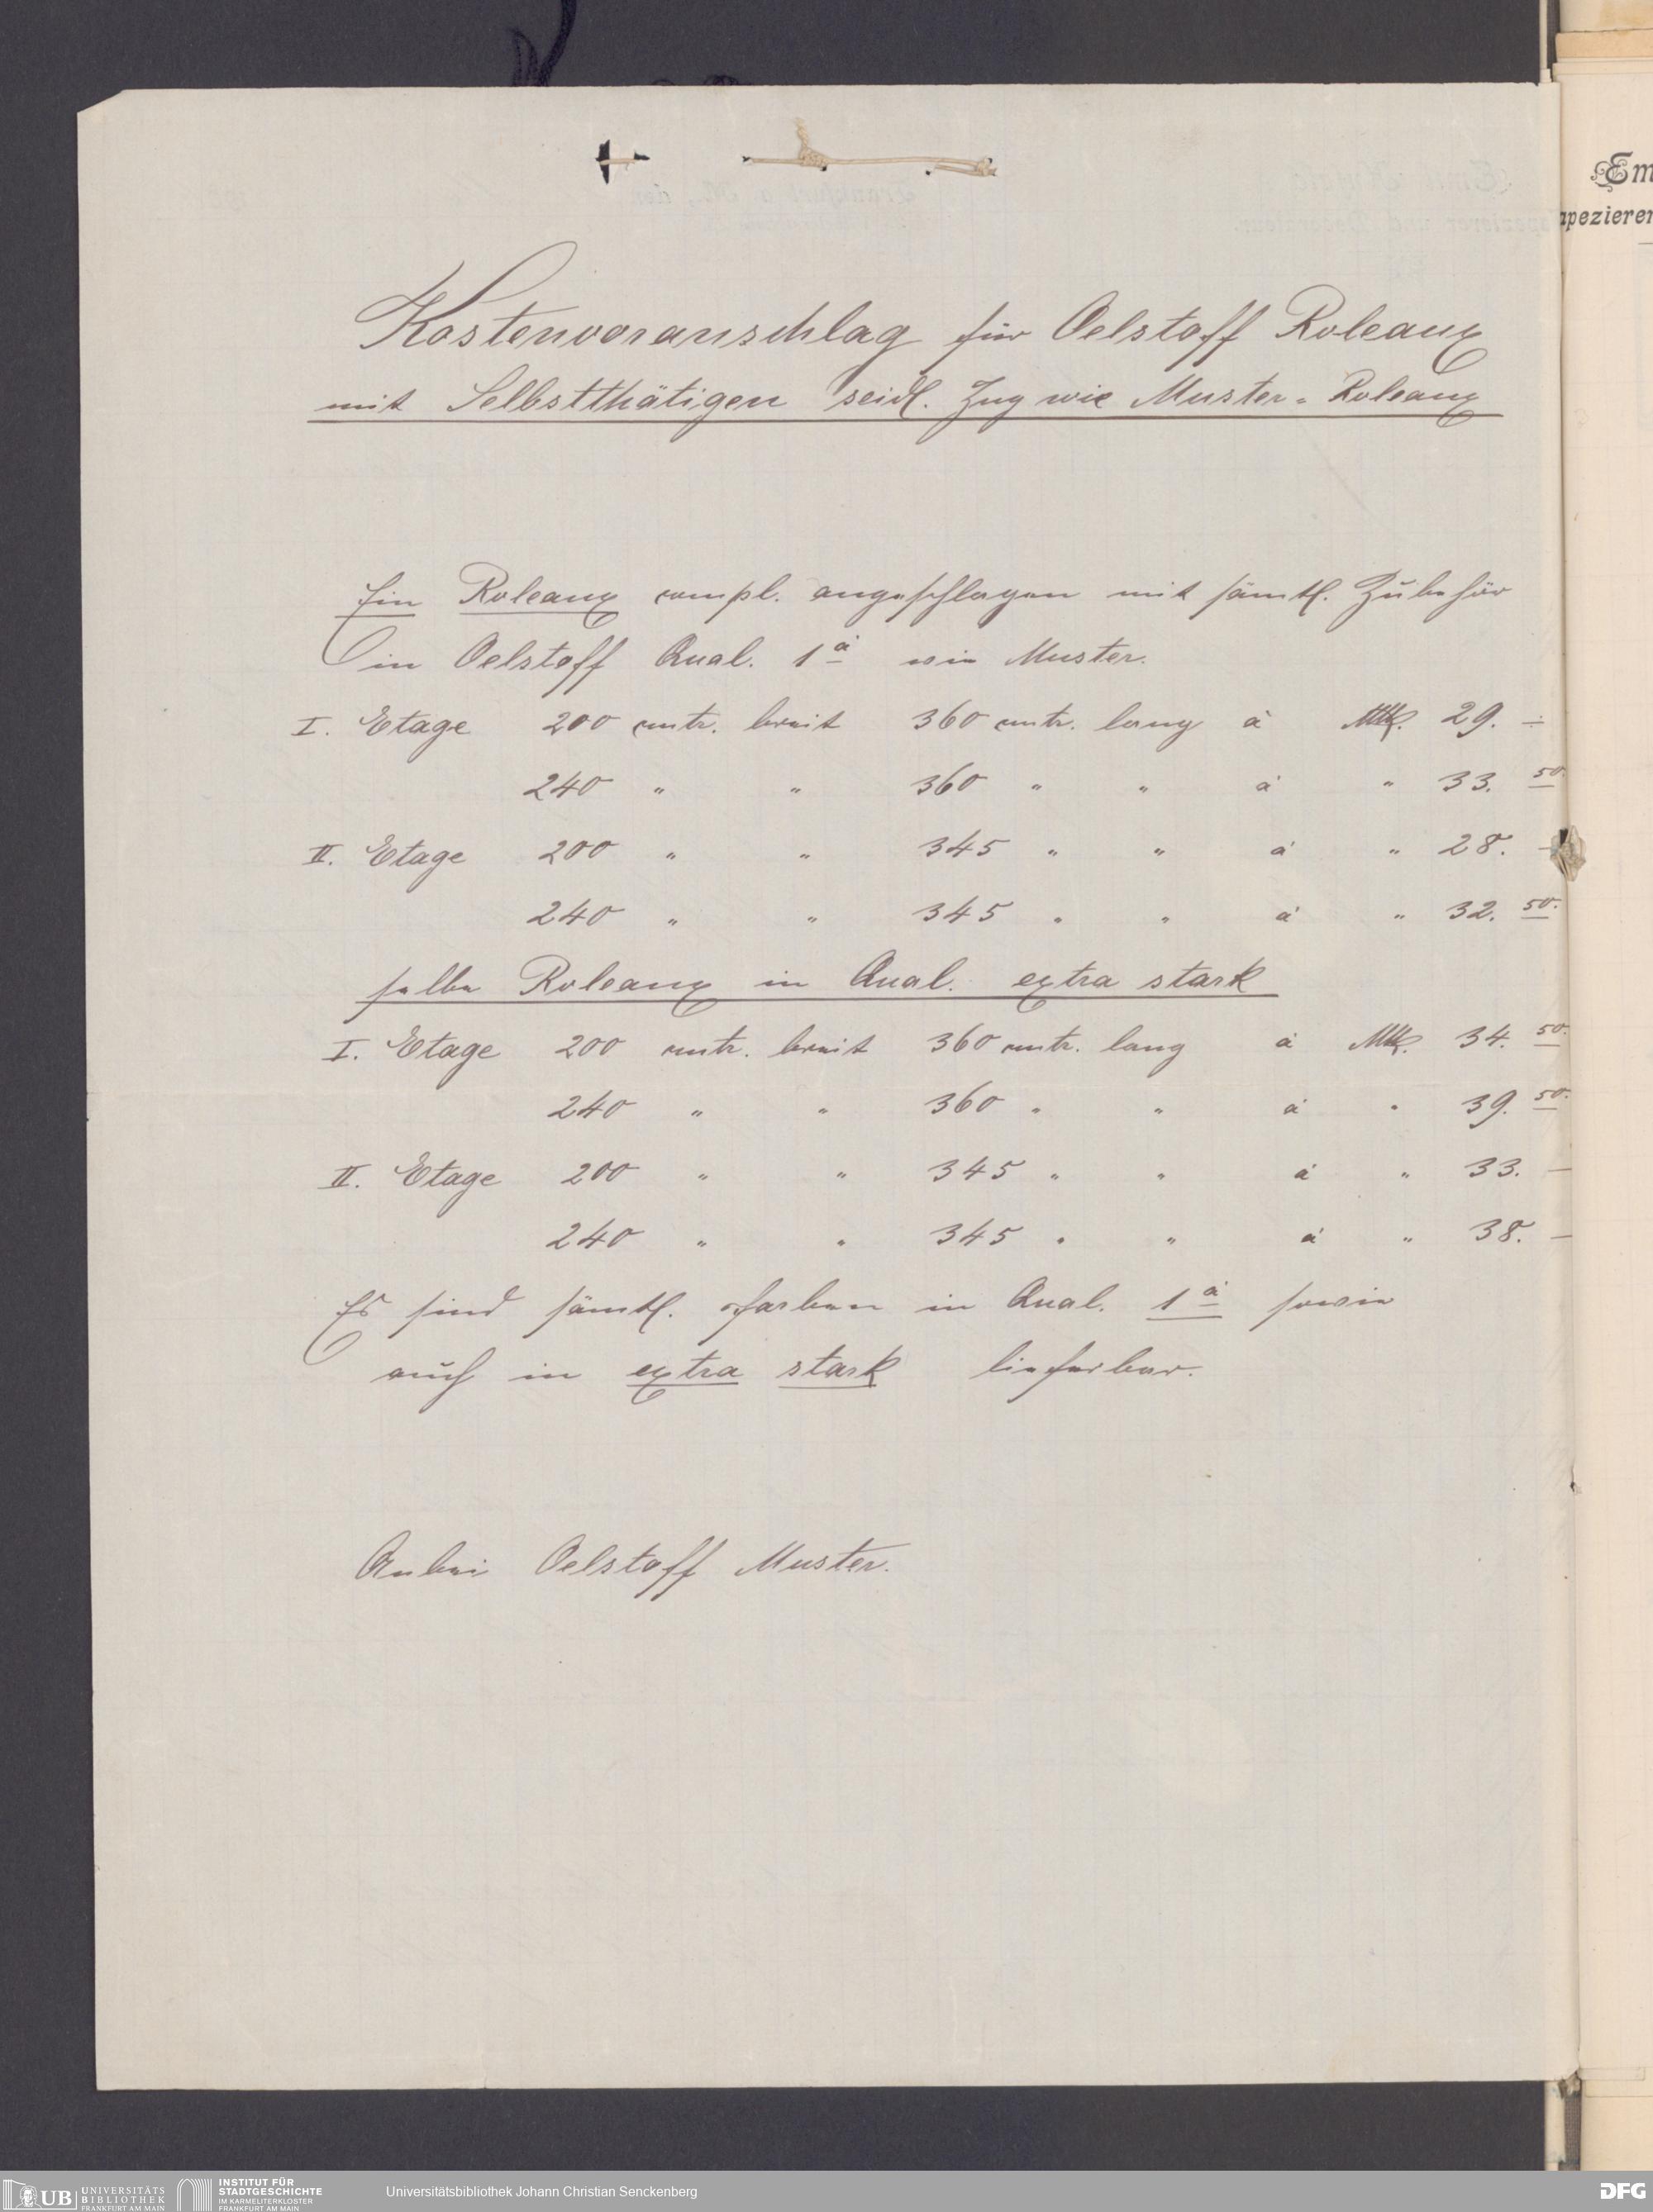 Em
apezierer
Kostenvoranschlag für Oelstoff Roleaux
mit Selbstthätigen seidl. Zug wie Muster-Roleaux
Ein Roleaux compl. angeschlagen mit sämtl. Zubehör
in Oelstoff Qual. 1ª wie Muster.
I. Etage 200 cmtr. breit 360 cmtr. lang à Mk. 29. -
240 " " 360 " " à " 33. 50.
II. Etage 200 " " 345 " " à " 28. -
240 " " 345 " " à " 32. 50.
selbe Roleaux in Qual. extra stark
I. Etage 200 cmtr. breit 360 cmtr. lang à Mk. 34. 50.
240 " " 360 " " à " 39. 50.
II. Etage 200 " " 345 " " à " 33. -
240 " " 345 " " à " 38. -
Es sind sämtl. Farben in Qual. 1ª sowie
auch in extra stark lieferbar.
Anbei Oelstoff Muster.
UB UNIVERSITÄTS
BIBLIOTHEK
FRANKFURT AM MAIN
INSTITUT FÜR
STADTGESCHICHTE
IM KARMELITERKLOSTER
FRANKFURT AM MAIN
Universitätsbibliothek Johann Christian Senckenberg
DFG